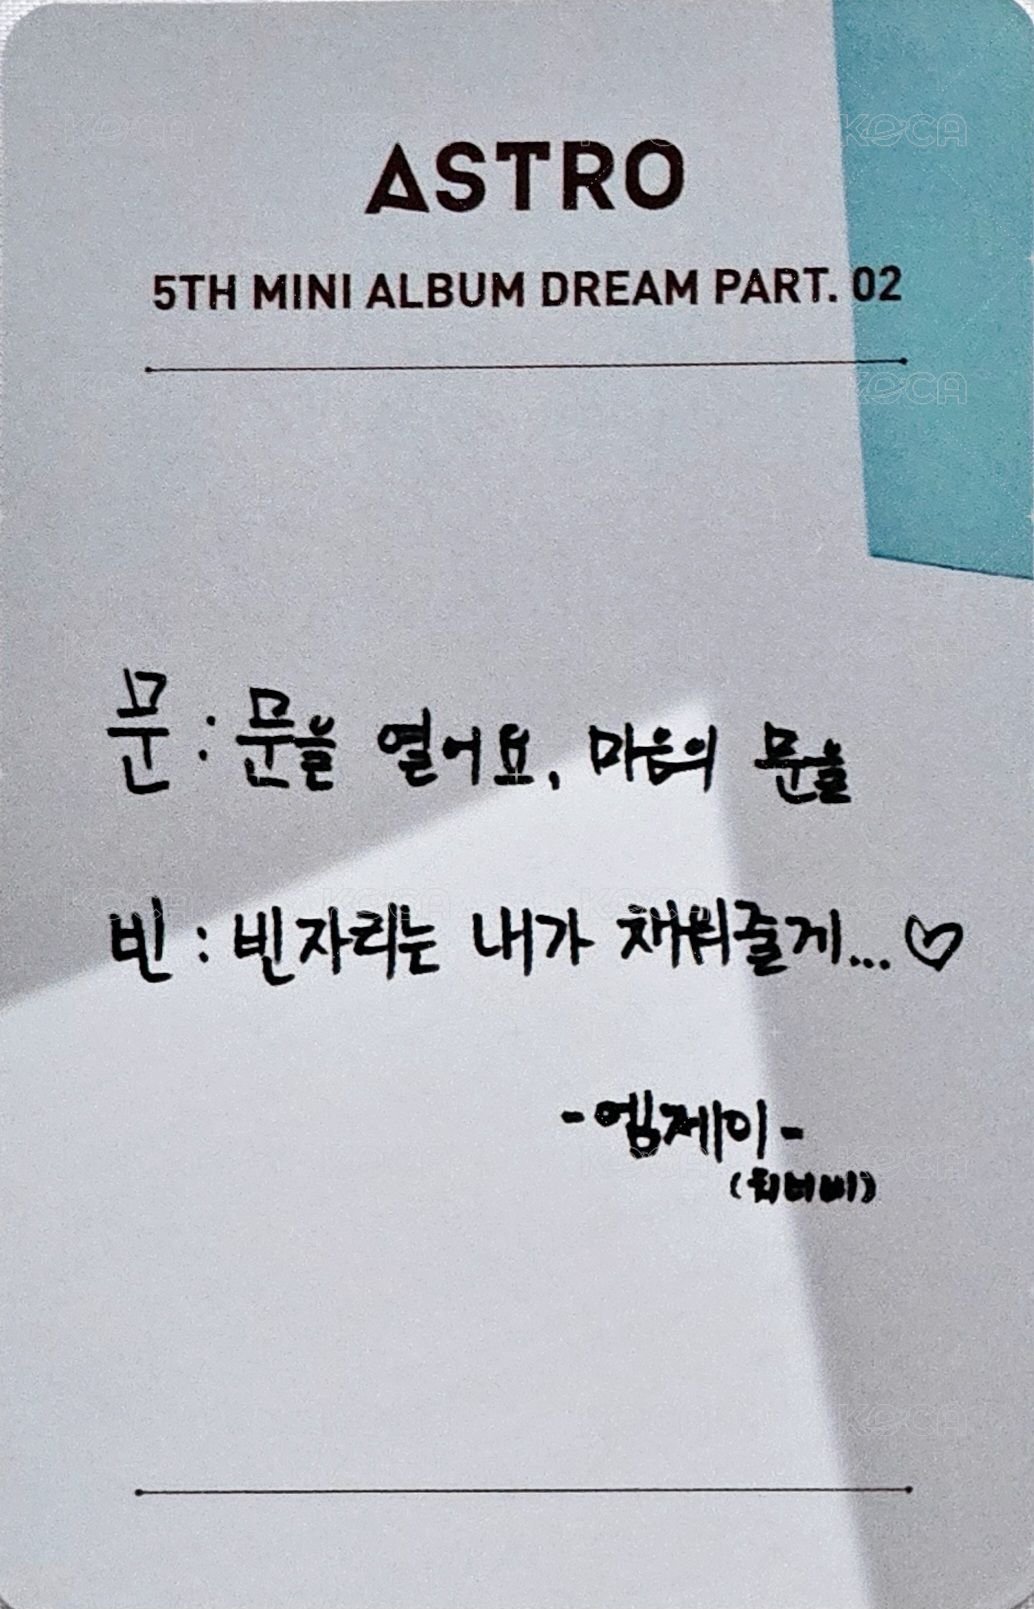 ASTRO
5TH MINI ALBUM DREAM PART. 02
문 : 문을 열어요, 마음의 문을
빈 : 빈자리는 내가 채워줄게...♡
-엠제이-